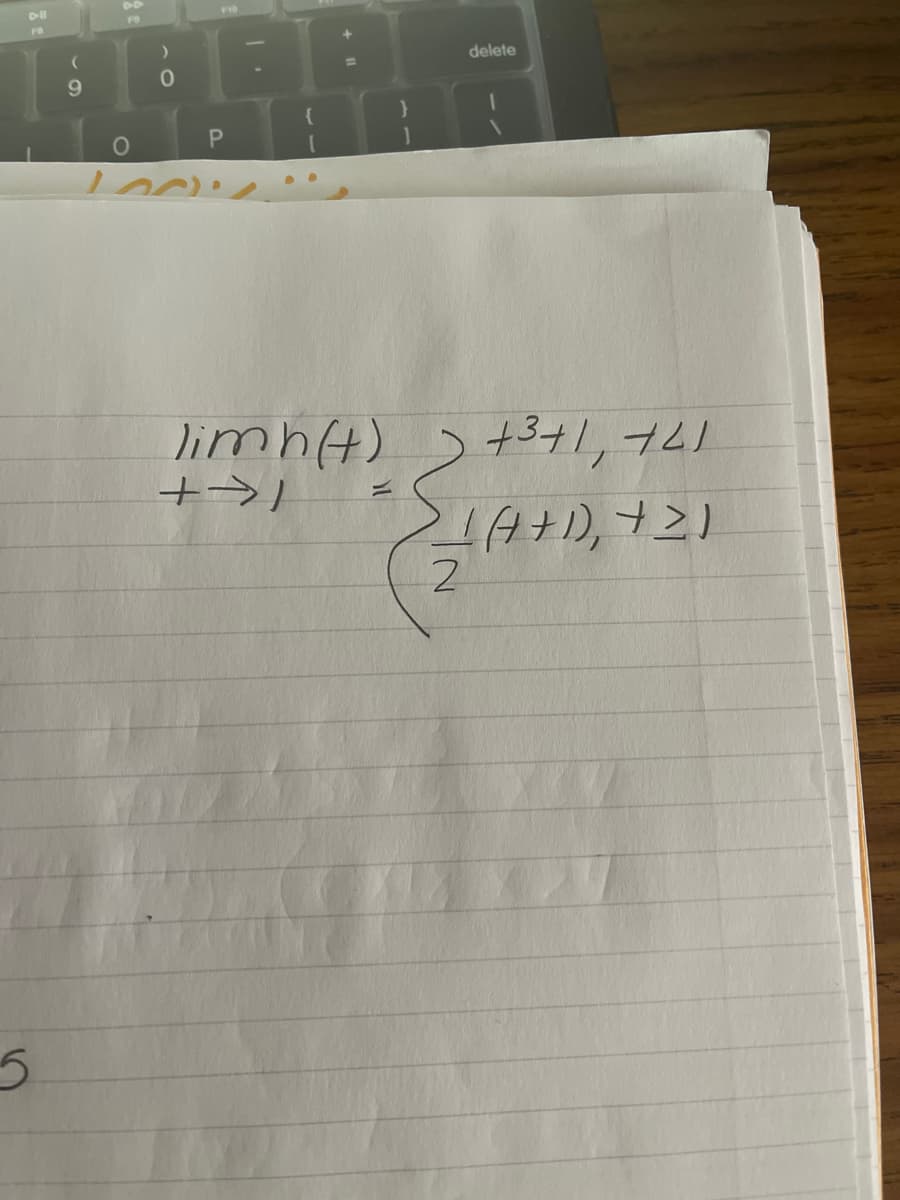 F8
F9
F10
(
9
)
0
_
-
+
=
delete
O
P
{
[
}
]
|
\
lim h(t) = { t³+1, t<1
t→1
1/2 (t+1), t≥1
5